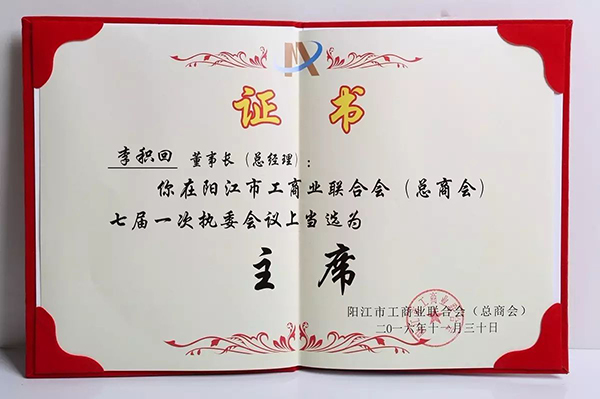 证书
李积回 董事长（总经理）：
你在阳江市工商业联合会（总商会）
七届一次执委会议上当选为
主席
阳江市工商业联合会（总商会）
二〇一六年十一月三十日